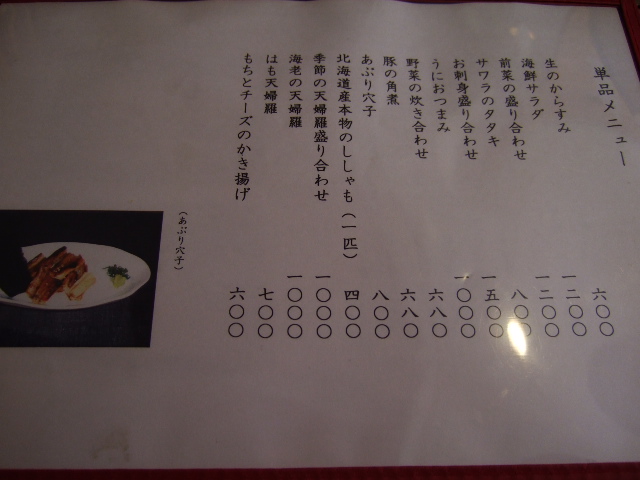 単品メニュー
生のからすみ 六〇〇
海鮮サラダ 一二〇〇
前菜の盛り合わせ 一二〇〇
サワラのタタキ 八〇〇
お刺身盛り合わせ 一五〇〇
うにおつまみ 一〇〇〇
野菜の炊き合わせ 六八〇
豚の角煮 六八〇
あぶり穴子 八〇〇
北海道産本物のししゃも(一匹) 四〇〇
季節の天婦羅盛り合わせ 一〇〇〇
海老の天婦羅 一〇〇〇
はも天婦羅 七〇〇
もちとチーズのかき揚げ 六〇〇
(あぶり穴子)